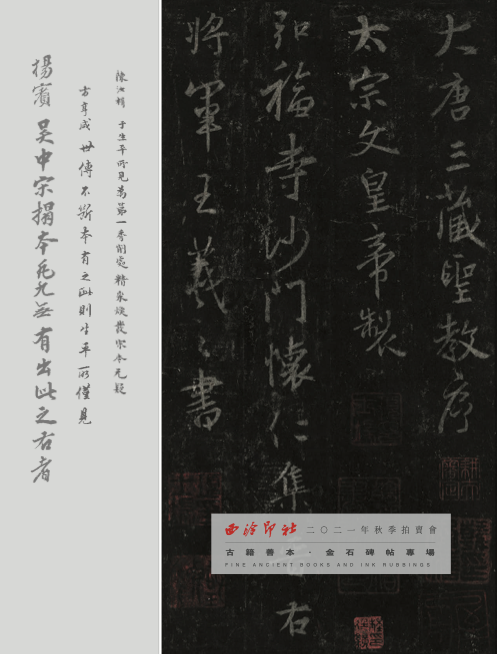 大唐三藏聖教序
太宗文皇帝製
弘福寺沙門懷仁集
右
將軍王羲之書
西泠印社 二〇二一年秋季拍賣會
古籍善本·金石碑帖專場
FINE ANCIENT BOOKS AND INK RUBBINGS
于生平所見為第一
古亨咸 世傳不斷本有之此則生平所僅見
楊賓 吴中宋搨本凡九并有出此之右者